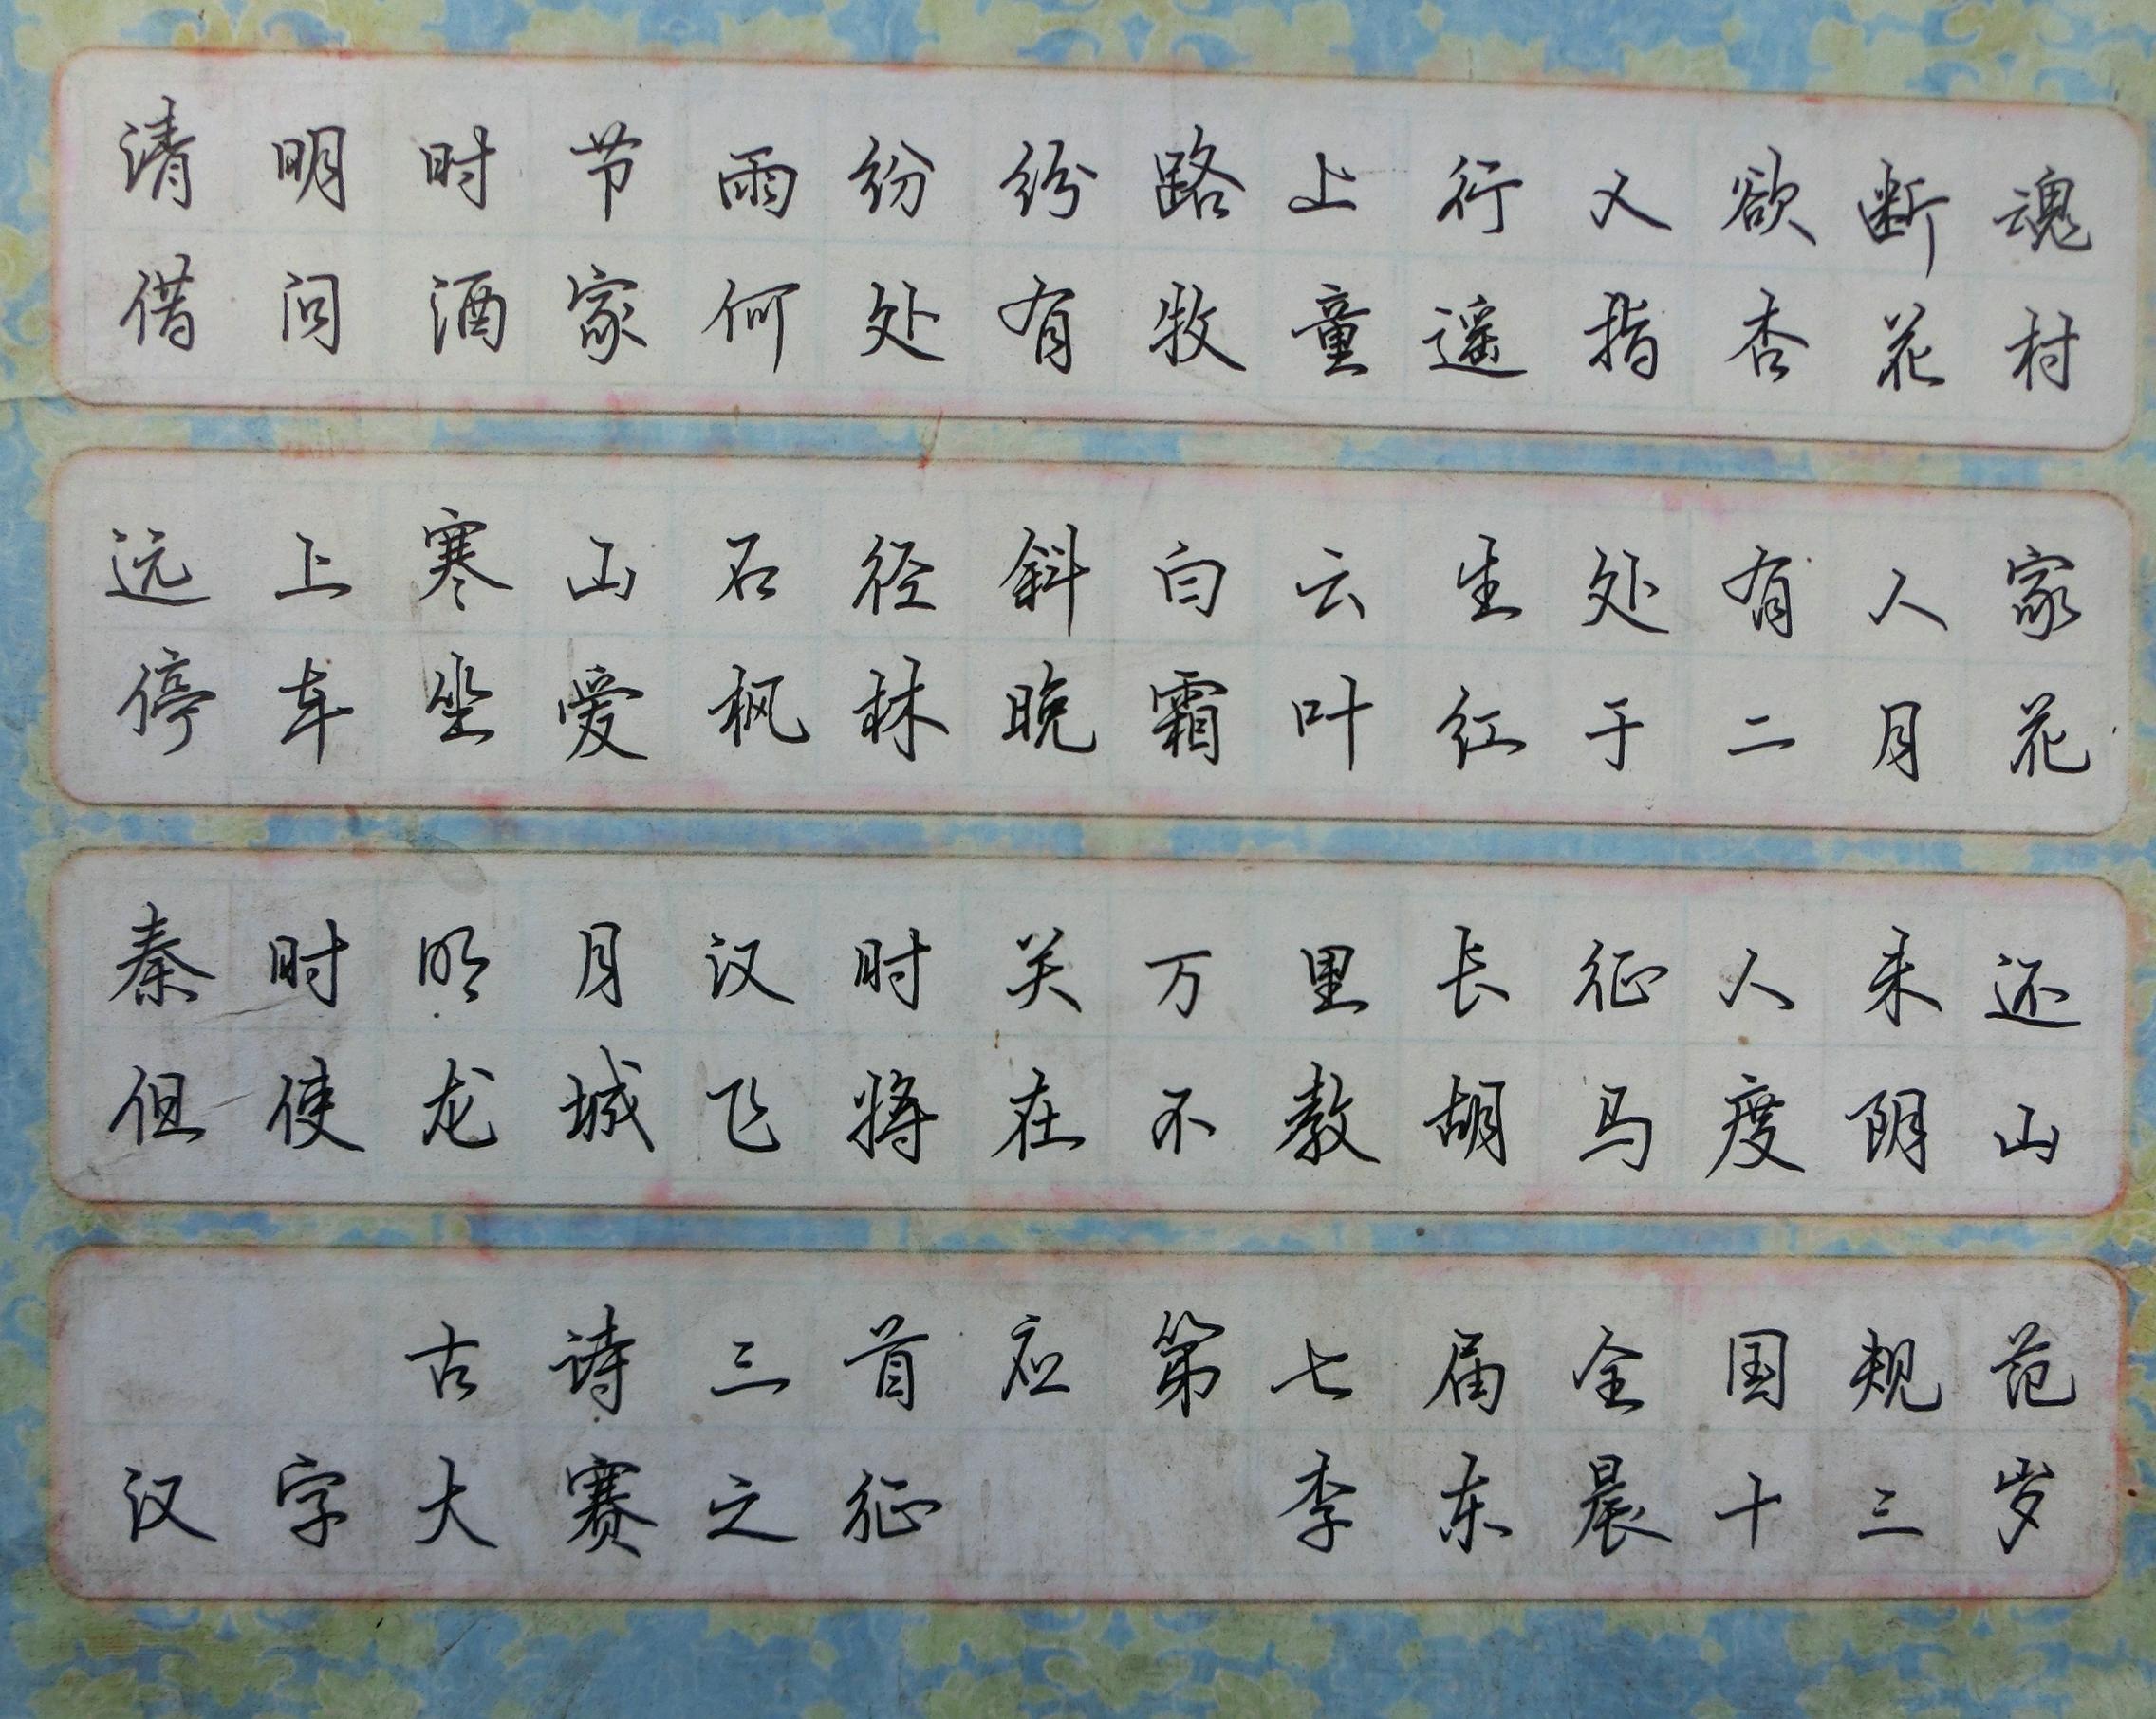 清明时节雨纷纷路上行又欲断魂
借问酒家何处有牧童遥指杏花村
远上寒山石径斜白云生处有人家
停车坐爱枫林晚霜叶红于二月花
秦时明月汉时关万里长征人未还
但使龙城飞将在不教胡马度阴山
古诗三首应第七届全国规范
汉字大赛之征 李东晨十三岁